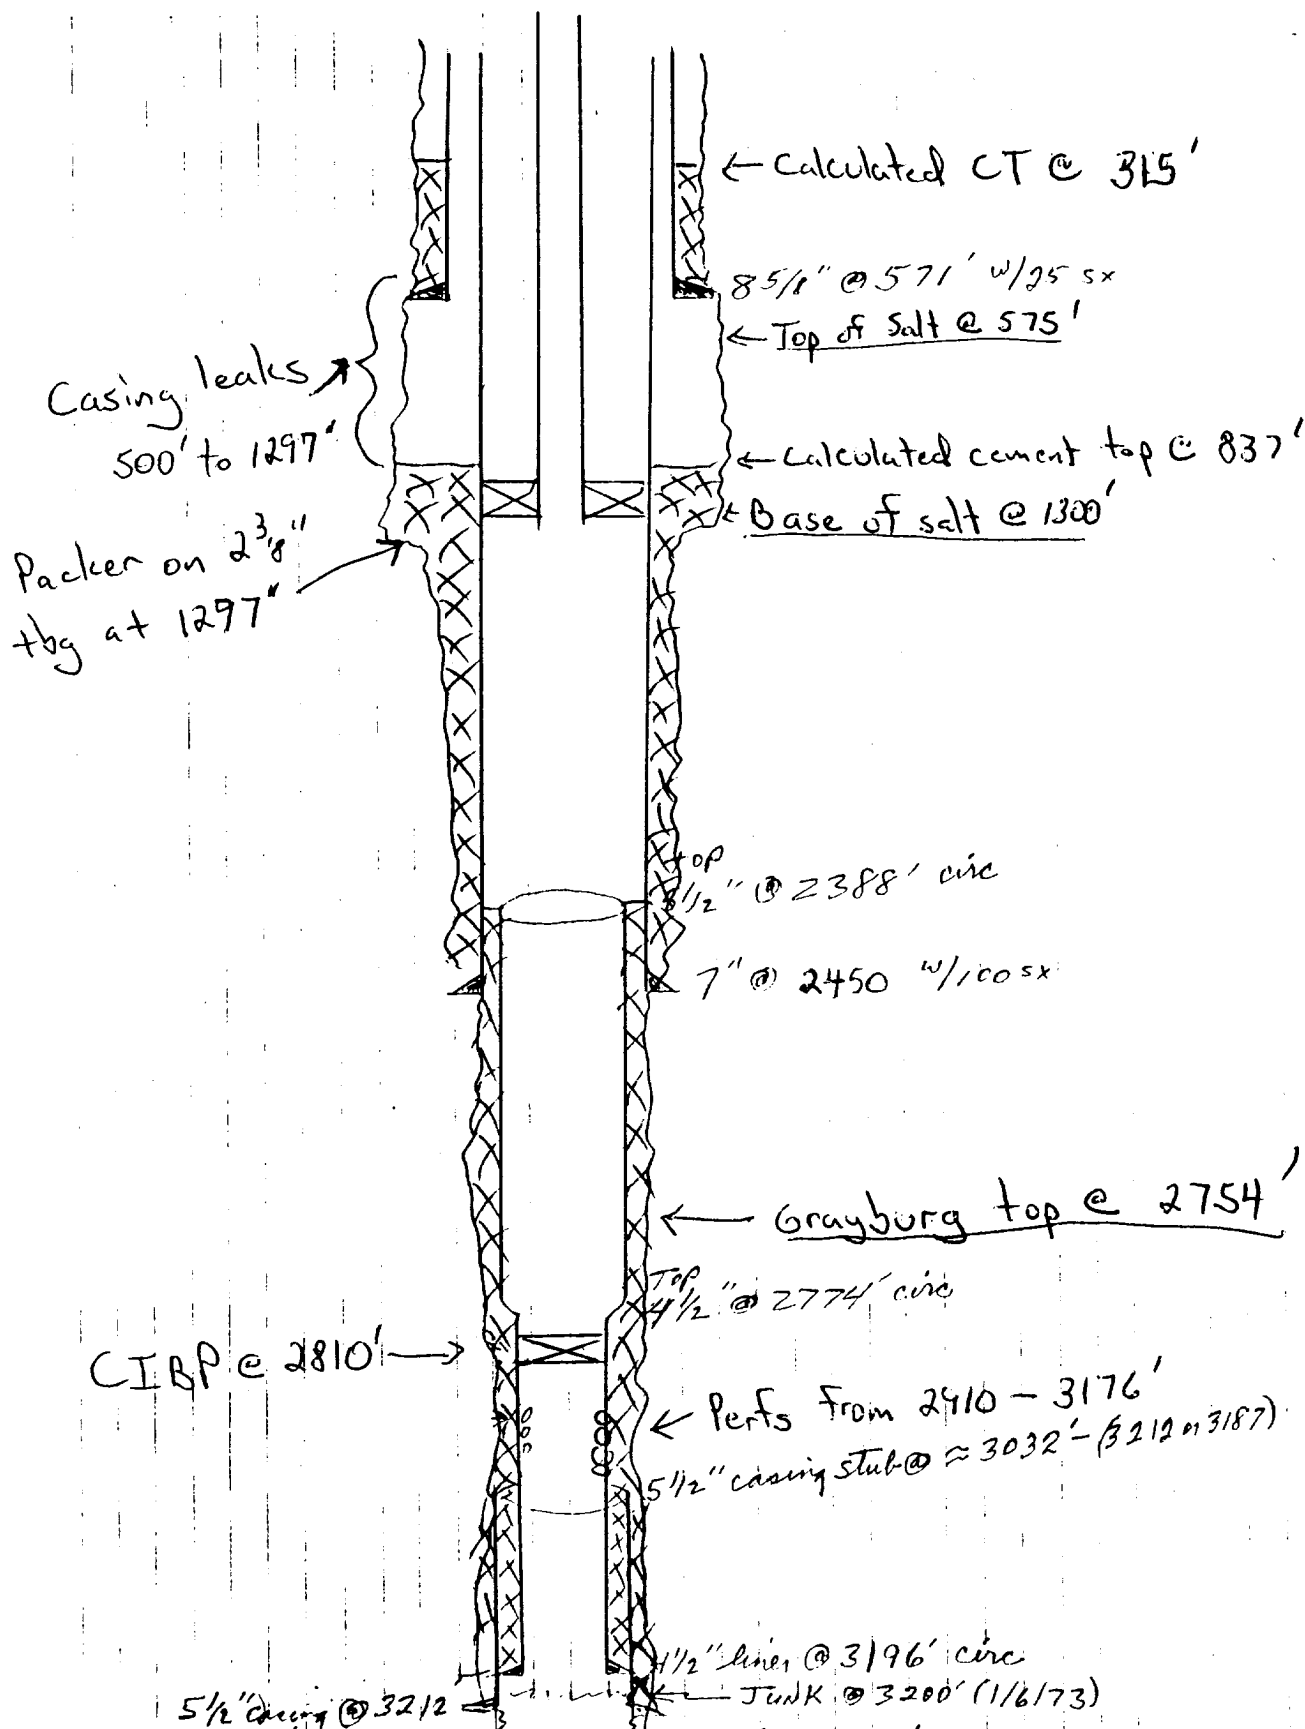 ← Calculated CT @ 315'
8 5/8" @ 571' w/25 sx
← Top of Salt @ 575'
Casing leaks
500' to 1297"
← Calculated cement top @ 837'
← Base of salt @ 1300'
Packer on 2 3/8"
tbg at 1297"
top
5 1/2" @ 2388' circ
7" @ 2450 w/100 sx
← Grayburg top @ 2754'
Top
4 1/2" @ 2774' circ
CIBP @ 2810' →
← Perfs from 2910 - 3176'
5 1/2" casing stub @ ≈ 3032' - (3212 or 3187)
4 1/2" liner @ 3196' circ
← JUNK @ 3200' (1/6/73)
5 1/2" casing @ 3212